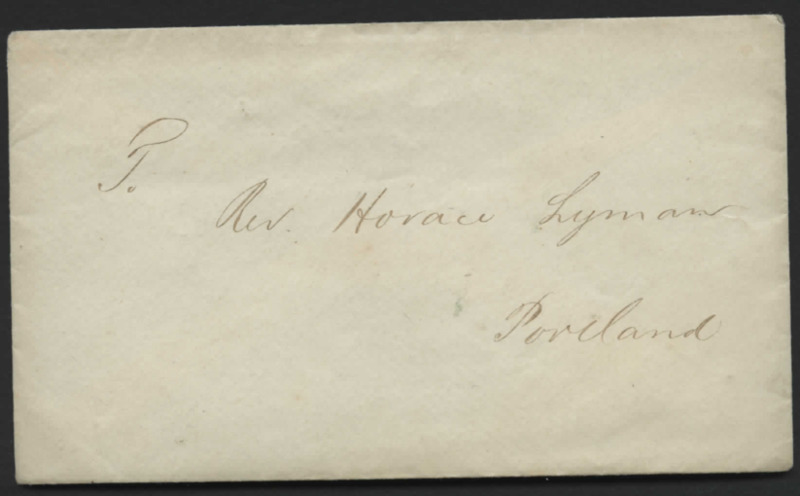 P.
Rev. Horace Lyman
Portland